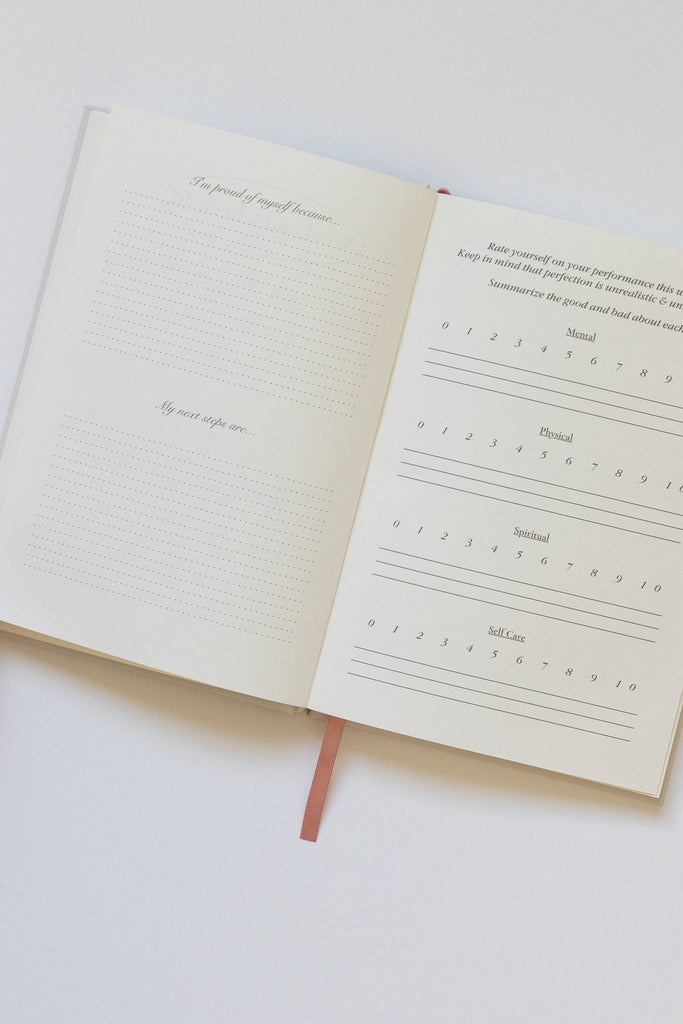 I'm proud of myself because...
My next steps are...
Rate yourself on your performance this
Keep in mind that perfection is unrealistic &
Summarize the good and bad about each
Mental
0 1 2 3 4 5 6 7 8 9
Physical
0 1 2 3 4 5 6 7 8 9 10
Spiritual
0 1 2 3 4 5 6 7 8 9 10
Self Care
0 1 2 3 4 5 6 7 8 9 10